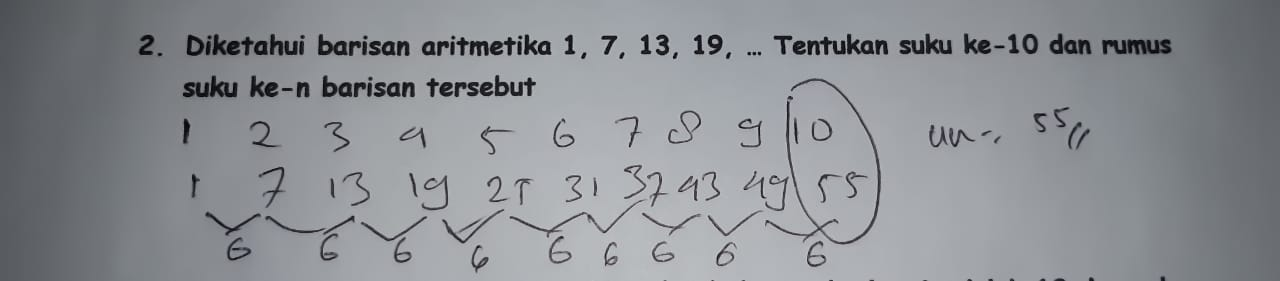 2. Diketahui barisan aritmetika 1, 7, 13, 19, ... Tentukan suku ke-10 dan rumus
suku ke-n barisan tersebut
1 2 3 4 5 6 7 8 9 10
1 7 13 19 25 31 37 43 49 55
6 6 6 6 6 6 6 6 6
55